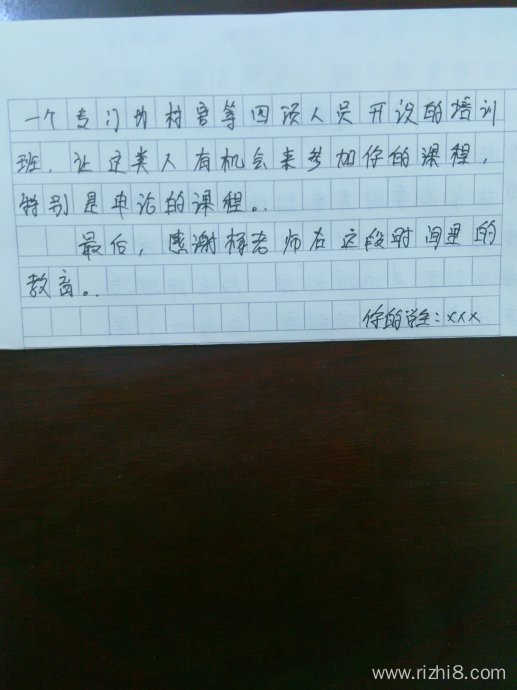 一个专门为村官等四项人员开设的培训
班，让这类人有机会来参加你的课程，
特别是申论的课程。
最后，感谢老师在这段时间里的
教育。
你的学生：xxx
www.rizhi8.com